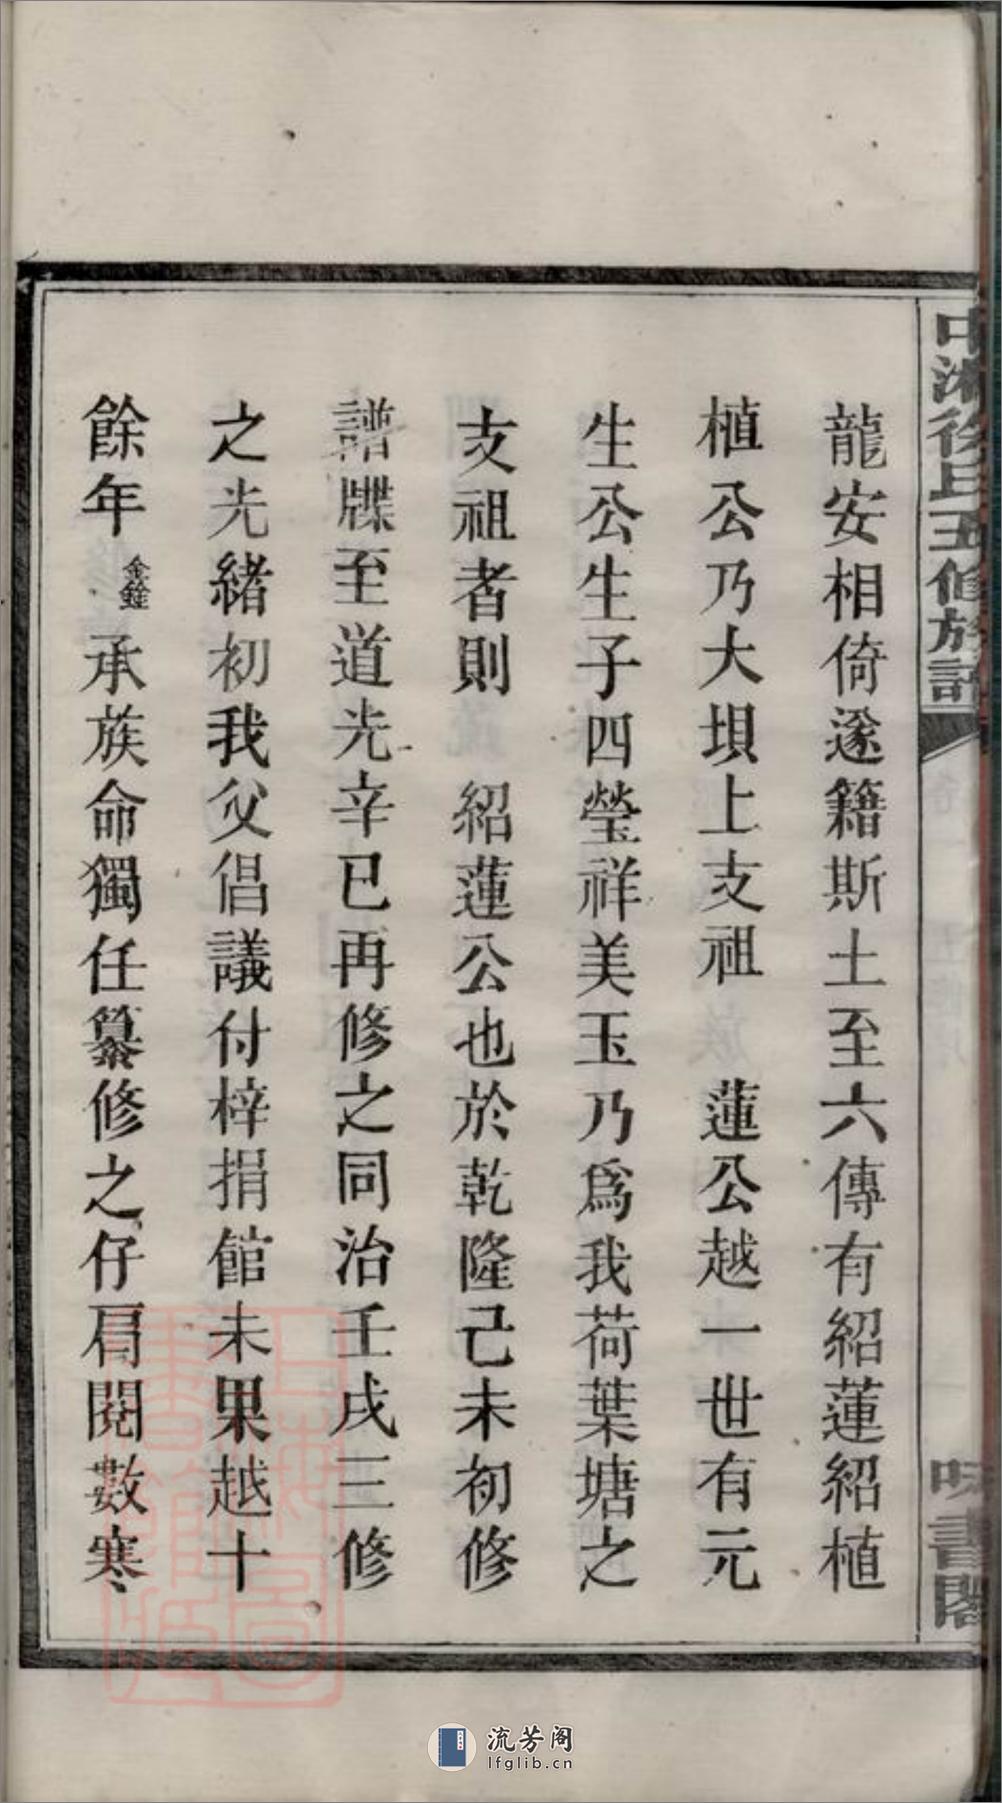 中湘徐氏五修族譜
味書閣
龍安相倚遂籍斯土至六傳有紹蓮紹植
植公乃大垻上支祖　蓮公越一世有元
生公生子四瑩祥美玉乃為我荷葉塘之
支祖者則　紹蓮公也於乾隆己未初修
譜牒至道光辛巳再修之同治壬戌三修
之光緒初我父倡議付梓捐館未果越十
餘年　承族命獨任纂修之仔肩閱數寒
流芳阁
lfglib.cn